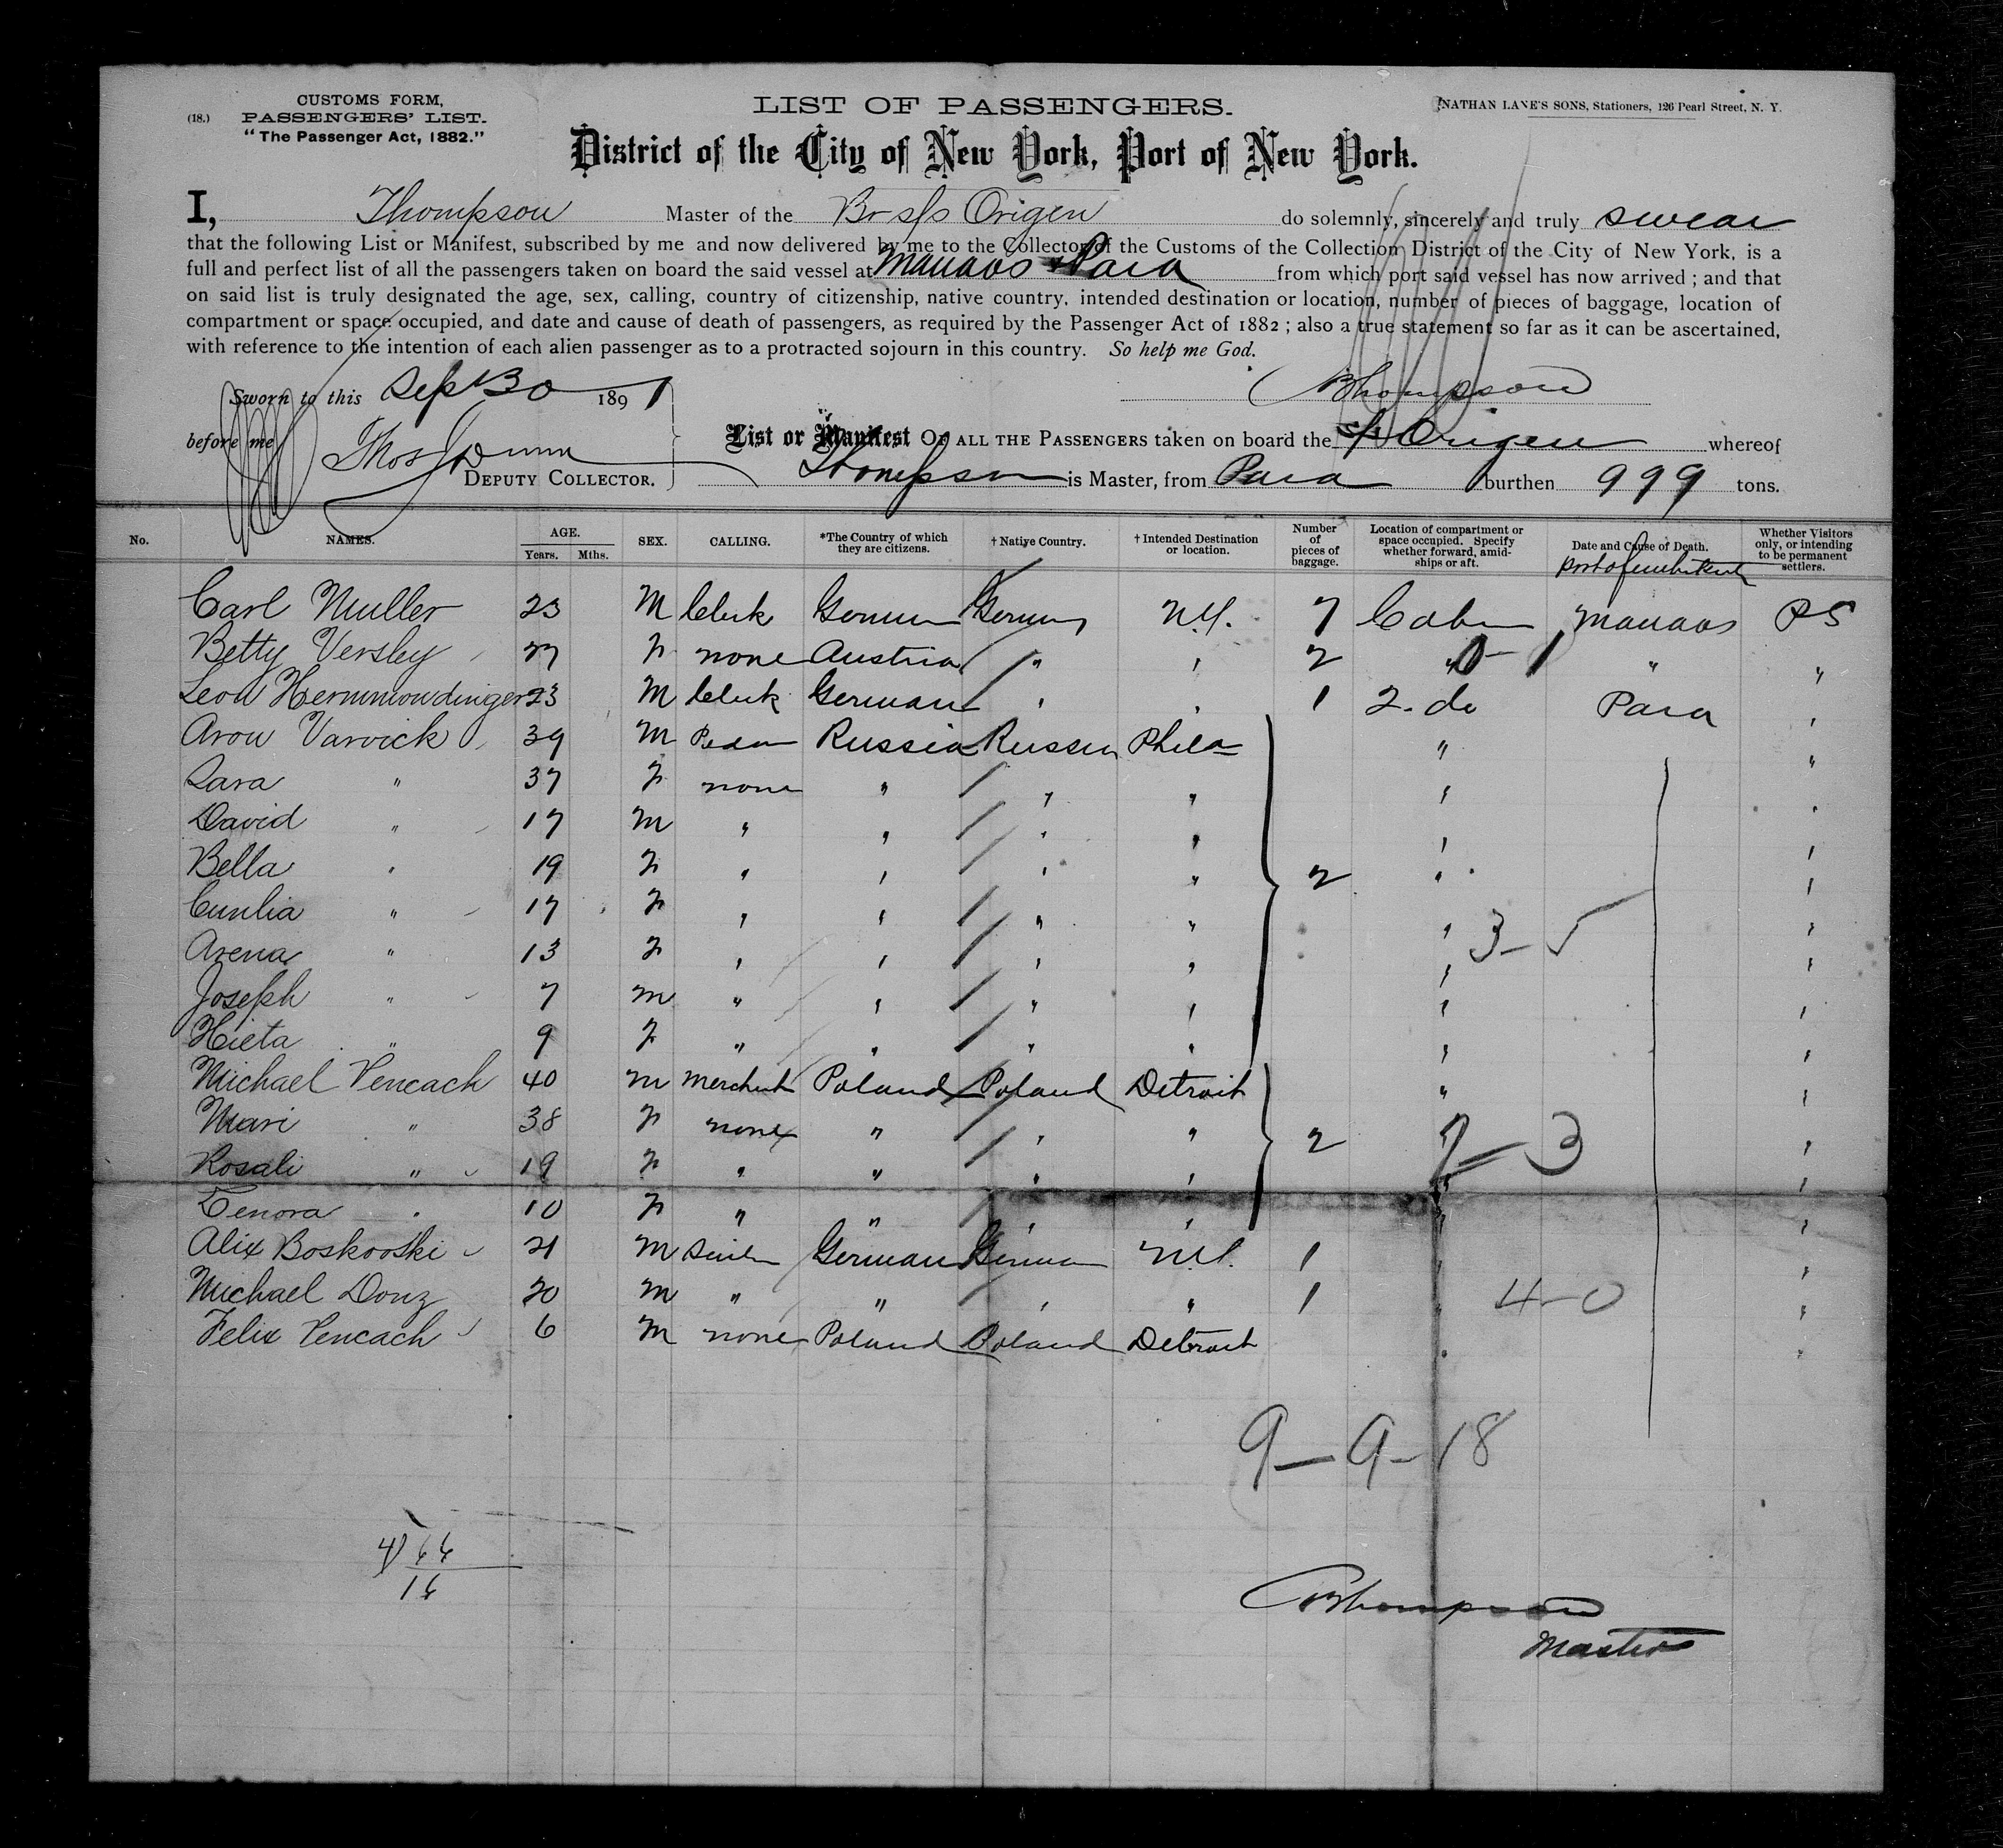 (18.)
CUSTOMS FORM,
PASSENGERS' LIST.
"The Passenger Act, 1882."
LIST OF PASSENGERS.
NATHAN LANE'S SONS, Stationers, 126 Pearl Street, N. Y.
District of the City of New York, Port of New York.
I, Thompson Master of the Br s/s Origen do solemnly, sincerely and truly swear
that the following List or Manifest, subscribed by me and now delivered by me to the Collector of the Customs of the Collection District of the City of New York, is a
full and perfect list of all the passengers taken on board the said vessel at Manaos & Para from which port said vessel has now arrived ; and that
on said list is truly designated the age, sex, calling, country of citizenship, native country, intended destination or location, number of pieces of baggage, location of
compartment or space occupied, and date and cause of death of passengers, as required by the Passenger Act of 1882 ; also a true statement so far as it can be ascertained,
with reference to the intention of each alien passenger as to a protracted sojourn in this country. So help me God.
Sworn to this Sep 30 1891
Thompson
before me Thos J Dunn
DEPUTY COLLECTOR.
List or Manifest OF ALL THE PASSENGERS taken on board the s/s Origen whereof
Thompson is Master, from Para burthen 999 tons.
No. NAMES. AGE. Years. Mths. SEX. CALLING. *The Country of which they are citizens. † Native Country. † Intended Destination or location. Number of pieces of baggage. Location of compartment or space occupied. Specify whether forward, amidships or aft. Date and Cause of Death. Whether Visitors only, or intending to be permanent settlers.
Port of
Carl Muller 23 M Clerk German German N.Y. 7 Cabin Manaos PS
Betty Versley 27 F none Austria " " 2 " 0-1 " "
Leon 23 M Clerk German " " 1 2. do Para "
Aron Varvick 39 M Russia Russia Phila " "
Sara " 37 F none " " " " "
David " 17 M " " " " " "
Bella " 19 F " " " " 2 " "
" 17 F " " " " " "
Arena " 13 F " " " " " 3-5 "
Joseph " 7 M " " " " " "
Hieta " 9 F " " " " " "
Michael Vencach 40 M Merchant Poland Poland Detroit " "
Mari " 38 F none " " " 2 " 3 "
Rosali " 19 F " " " " " "
Tenora " 10 F " " " " " "
Alix Boskovski 21 M German German N.Y. 1 " "
Michael Donz 20 M " " " " 1 " 4-0 "
Felix Vencach 6 M none Poland Poland Detroit " "
9-9-18
4) 66
16
Thompson
Master